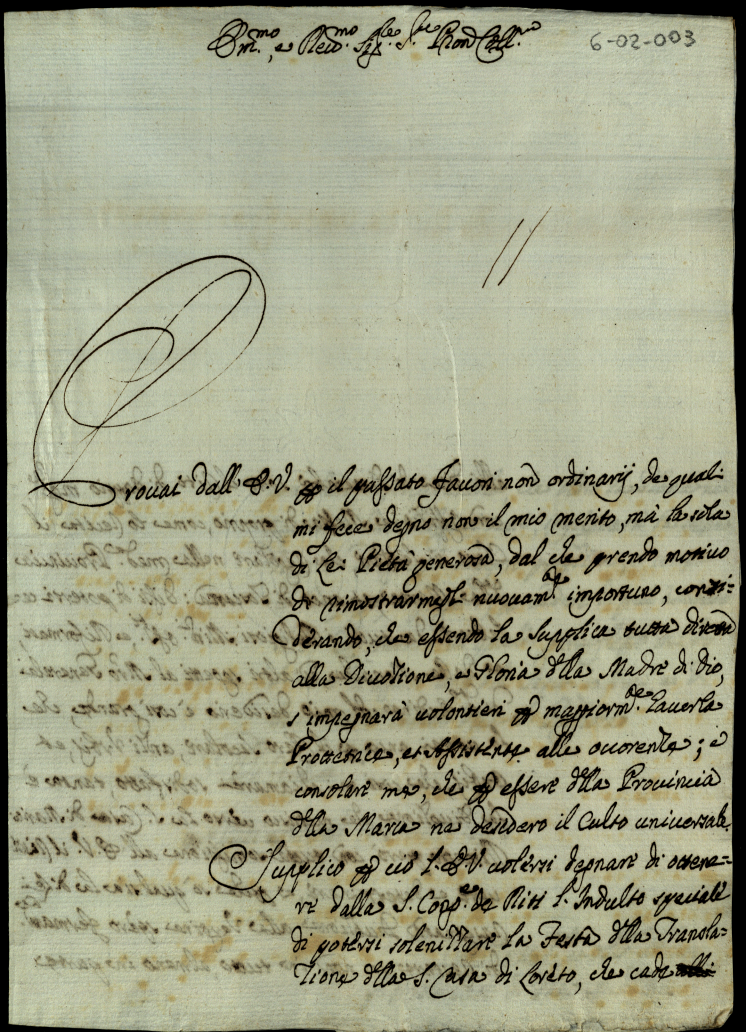 Em.mo, e Reu.mo Sig.re S.re Pron Coll.mo
6-02-003
Prouai dall' E.V. per il passato fauori non ordinarij, de quali
mi fece degno non il mio merito, mà la sola
di Lei Pietà generosa, dal che prendo motiuo
di rimostrarmegli nuouam.te importuno, consi-
derando, che essendo la supplica tutta diretta
alla Diuotione, e Gloria della Madre di Dio,
s'impegnarà uolontieri per maggiorm.te hauerla
Protettrice, et Assistente alle occorenze; e
consolare me, che per essere della Prouincia
della Marca ne desidero il Culto uniuersale.
Supplico per ciò l'E.V. uolersi degnare di ottene-
re dalla S. Cong.e de Riti l'Indulto speciale
di potersi solenizare la Festa della Transla-
tione della S. Casa di Loreto, che cade